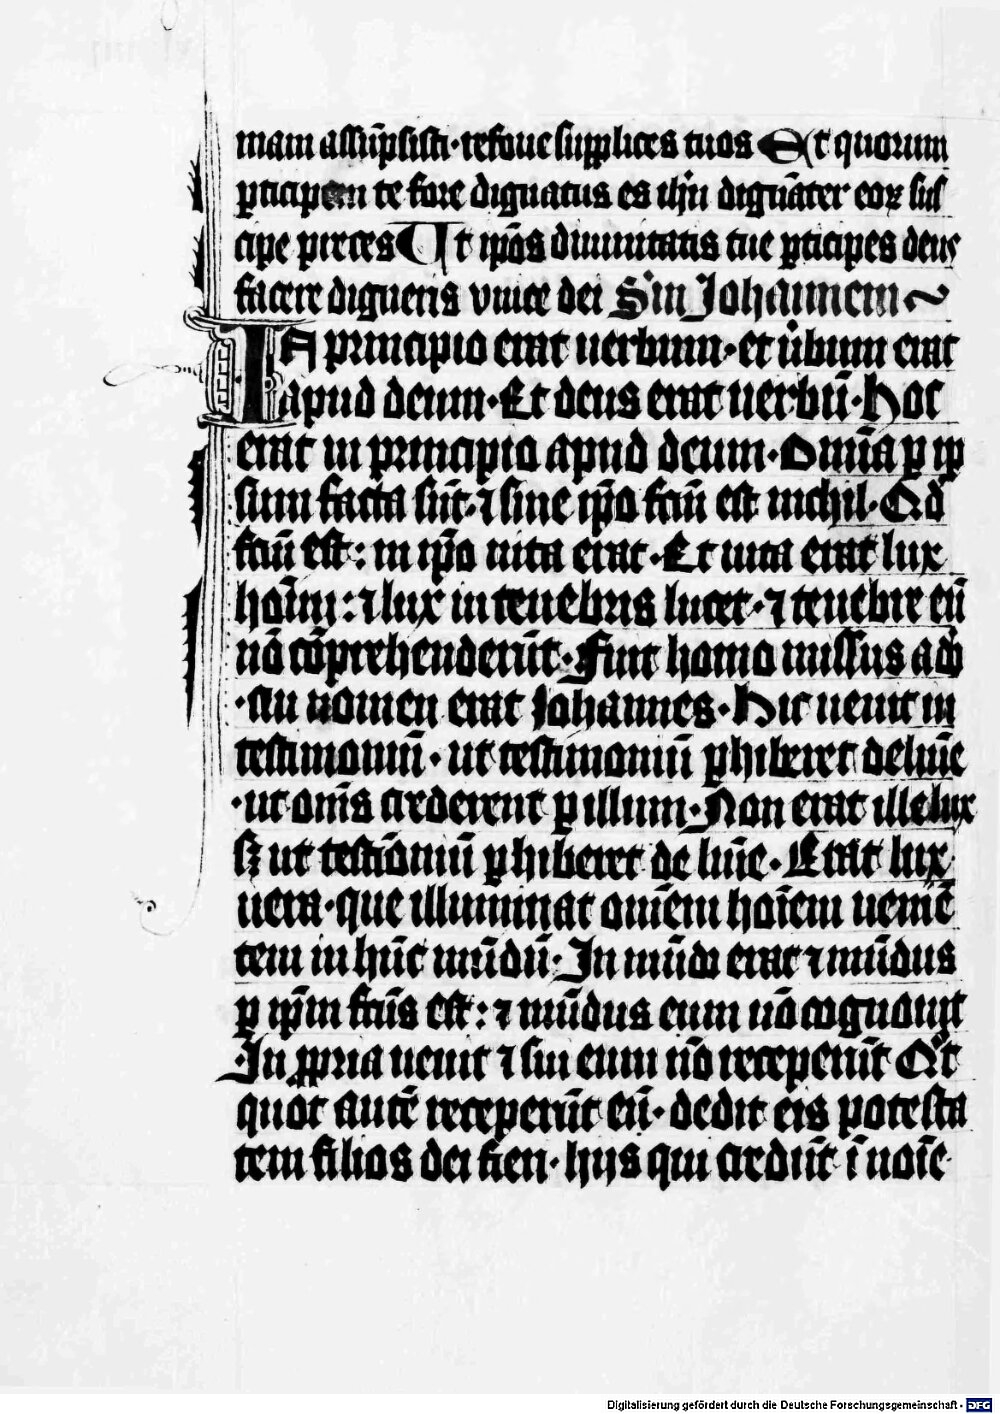 mam assũpsisti· refoue supplices tuos Et quorum
ꝑticipem te fore dignatus es ihũ dignãter eoꝝ sus
cipe preces Ut ip̃os diuinitatis tue ꝑticipes deus
facere digneris viuere dei Sm Johannem
IN principio erat uerbum· et ũbum erat
apud deum· Et deus erat uerbũ· Hoc
erat in principio apud deum· Om̃ia ꝑ ip
sum facta sũt· ⁊ sine ip̃o fcũ est nichil· Qd
fcũ est: in ip̃o uita erat· Et uita erat lux
hoĩm: ⁊ lux in tenebris lucet· ⁊ tenebre eũ
nõ cõprehenderũt· Fuit homo missus a do
·cui nomen erat Johannes· Hic uenit in
testimoniũ· ut testimoniũ ꝑhiberet de lũie
·ut om̃s crederent ꝑ illum· Non erat ille lux
sꝫ ut testiõniũ ꝑhiberet de lũie· Erat lux
uera· que illuminat om̃em hoĩem uenie͂
tem in hũc mũdũ· In mũdo erat ⁊ mũdus
ꝑ ip̃m fcũs est: ⁊ mũdus eum nõ cognouit
·In ꝓpria uenit ⁊ sui eum nõ receperũt Qt
quot autẽ receperũt eũ· dedit eis potesta
tem filios dei fieri· hijs qui credũt ĩ noĩe·
Digitalisierung gefördert durch die Deutsche Forschungsgemeinschaft - DFG